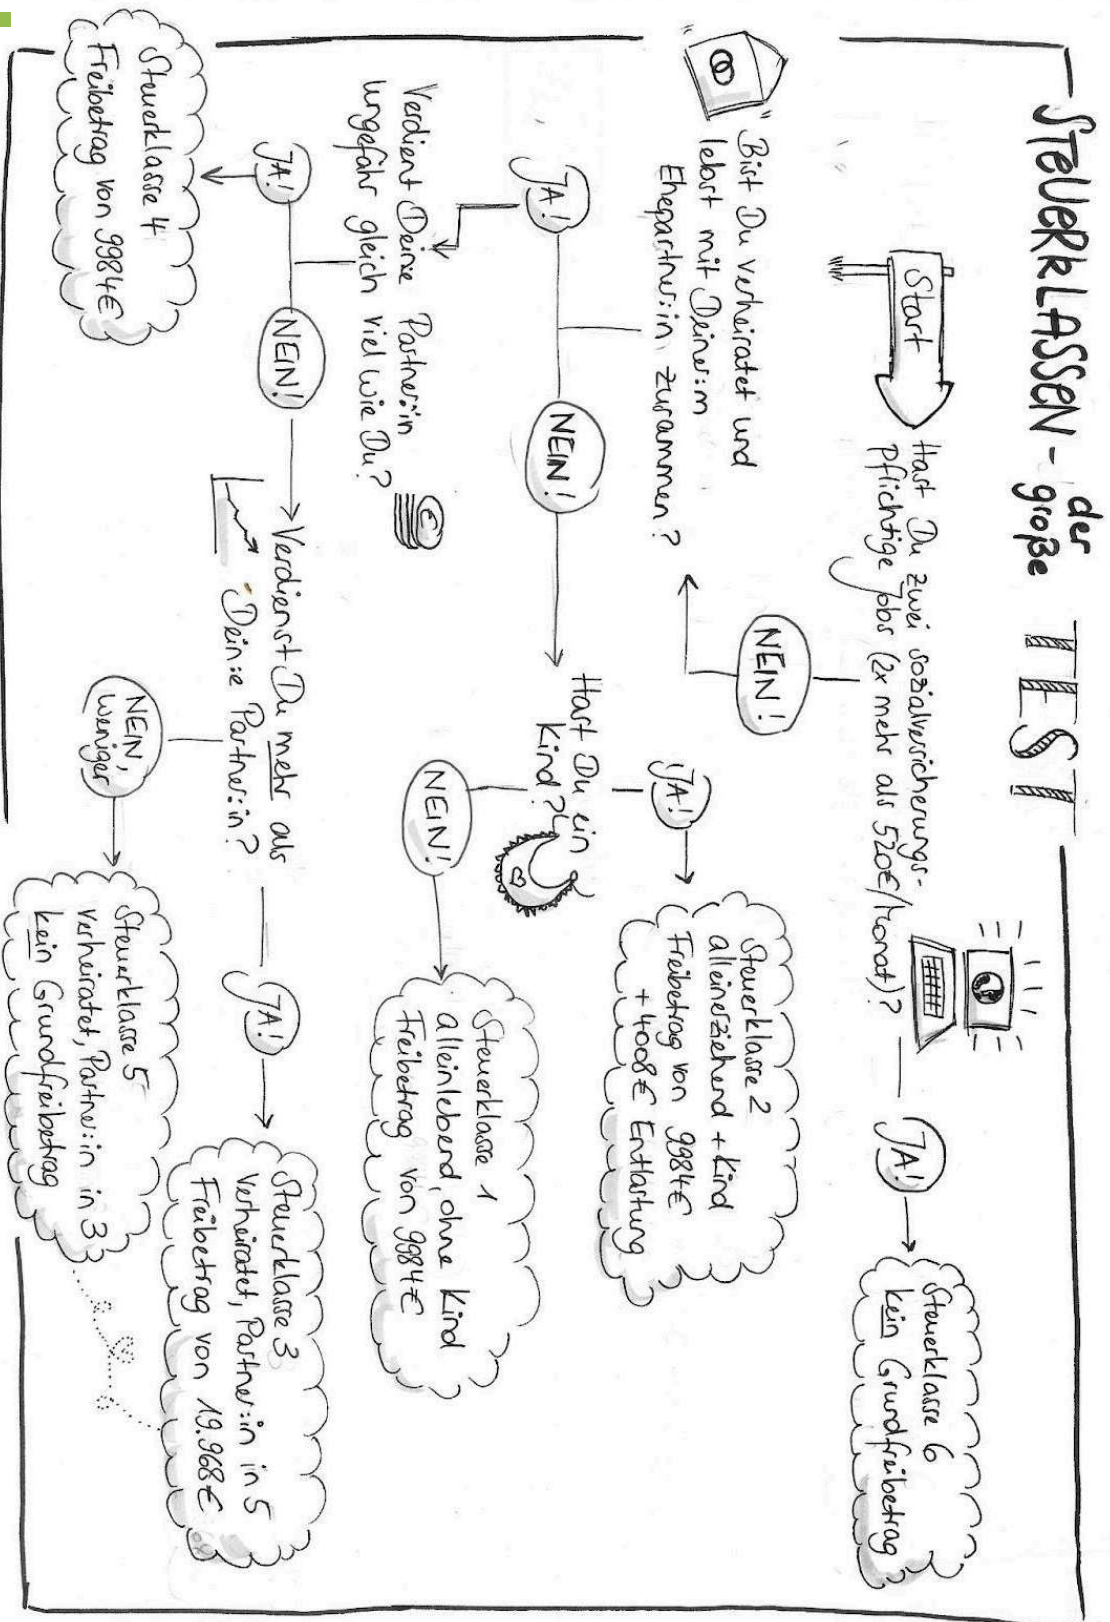 STEUERKLASSEN - der große TEST
Start
Hast Du zwei sozialversicherungs-
pflichtige Jobs (2x mehr als 520€/Monat)?
JA!
Steuerklasse 6
kein Grundfreibetrag
NEIN!
Bist Du verheiratet und
lebst mit Deiner:m
Ehepartner:in zusammen?
JA!
NEIN!
Hast Du ein
Kind?
JA!
Steuerklasse 2
alleinerziehend + Kind
Freibetrag von 9984€
+ 4008€ Entlastung
NEIN!
Steuerklasse 1
alleinlebend, ohne Kind
Freibetrag von 9984€
Verdient Deine Partner:in
ungefähr gleich viel wie Du?
€
JA!
Steuerklasse 4
Freibetrag von 9984€
NEIN!
Verdienst Du mehr als
Dein:e Partner:in?
JA!
Steuerklasse 3
Verheiratet, Partner:in in 5
Freibetrag von 19.968€
NEIN,
weniger
Steuerklasse 5
verheiratet, Partner:in in 3
kein Grundfreibetrag